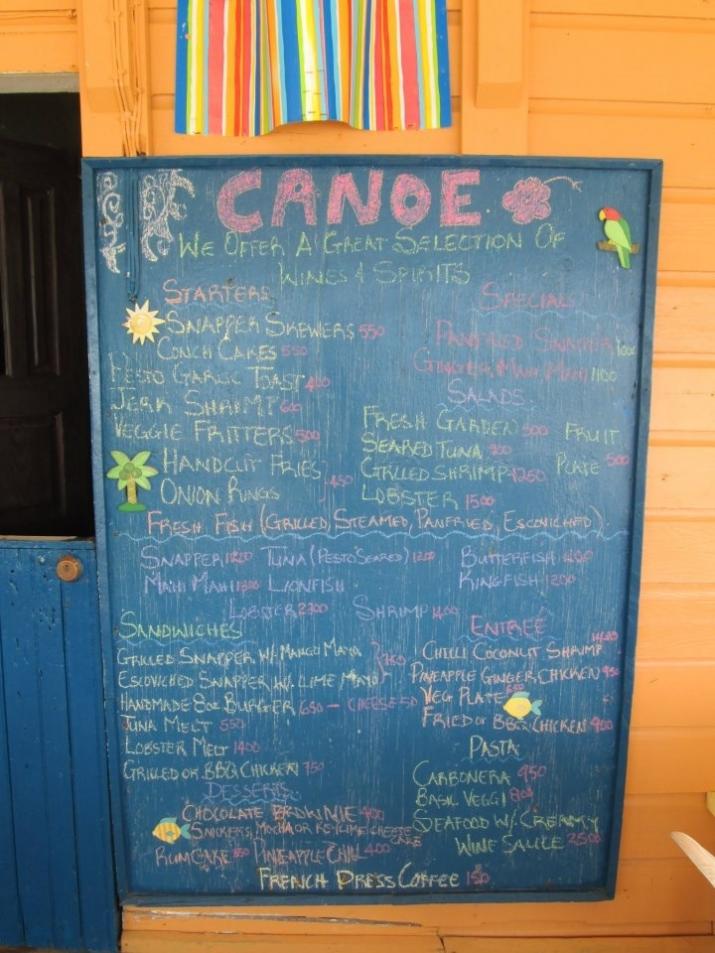 CANOE
WE OFFER A GREAT SELECTION OF
WINES & SPIRITS
STARTERS
SNAPPER SKEWERS 550
CONCH CAKES 550
PESTO GARLIC TOAST 400
JERK SHRIMP 600
VEGGIE FRITTERS 500
HANDCUT FRIES
ONION RINGS 450
SPECIALS
PANFRIED SNAPPER
GINGER MAHI MAHI 1100
SALADS
FRESH GARDEN 500
SEARED TUNA 900
GRILLED SHRIMP 1250
LOBSTER 1500
FRUIT
PLATE 500
FRESH FISH (GRILLED, STEAMED, PANFRIED, ESCOVICHED)
SNAPPER TUNA (PESTO SEARED) 1200 BUTTERFISH
MAHI MAHI 1300 LIONFISH KINGFISH 1200
LOBSTER 2300 SHRIMP 1400
SANDWICHES
GRILLED SNAPPER W/ MANGO MAYO
ESCOVICHED SNAPPER W/ LIME MAYO 750
HANDMADE 8oz BURGER 650 - CHEESE 50
TUNA MELT 550
LOBSTER MELT 1400
GRILLED OR BBQ CHICKEN 750
DESSERTS
CHOCOLATE BROWNIE 400
SNICKERS, MOCHA OR KEYLIME CHEESE
CAKE
RUMCAKE PINEAPPLE 400
ENTREÉ
CHILLI COCONUT SHRIMP
PINEAPPLE GINGER CHICKEN 950
VEG PLATE
FRIED OR BBQ CHICKEN 900
PASTA
CARBONERA 950
BASIL VEGGI 800
SEAFOOD W/ CREAMY
WINE SAUCE 2500
FRENCH PRESS COFFEE 150